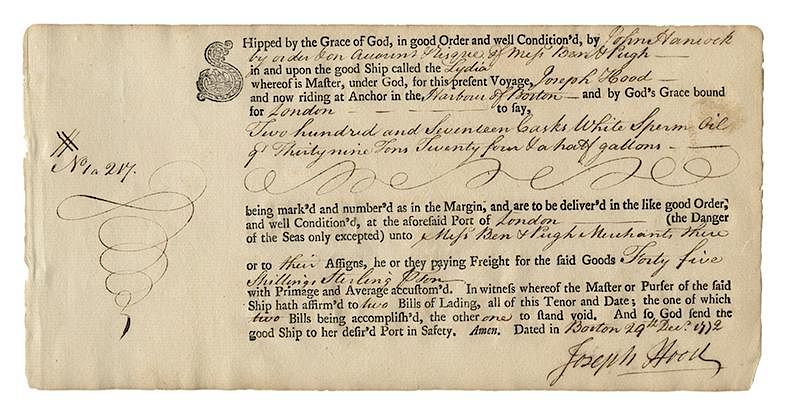 SHipped by the Grace of God, in good Order and well Condition'd, by John Hancock
by order & on Account & Risque of Mess Ben & Pugh
in and upon the good Ship called the Lydia
whereof is Master, under God, for this present Voyage, Joseph Hood
and now riding at Anchor in the Harbour of Boston and by God's Grace bound
for London to say,
Two hundred and Seventeen Casks White Sperm Oil
qt Thirty nine Tons Twenty four & a half gallons
No 1 a 217.
being mark'd and number'd as in the Margin, and are to be deliver'd in the like good Order,
and well Condition'd, at the aforesaid Port of London (the Danger
of the Seas only excepted) unto Mess Ben & Pugh Merchants there
or to their Assigns, he or they paying Freight for the said Goods Forty five
Shillings Sterling P ton
with Primage and Average accustom'd. In witness whereof the Master or Purser of the said
Ship hath affirm'd to two Bills of Lading, all of this Tenor and Date; the one of which
two Bills being accomplish'd, the other one to stand void. And so God send the
good Ship to her desir'd Port in Safety. Amen. Dated in Boston 29th Decr. 1772
Joseph Hood